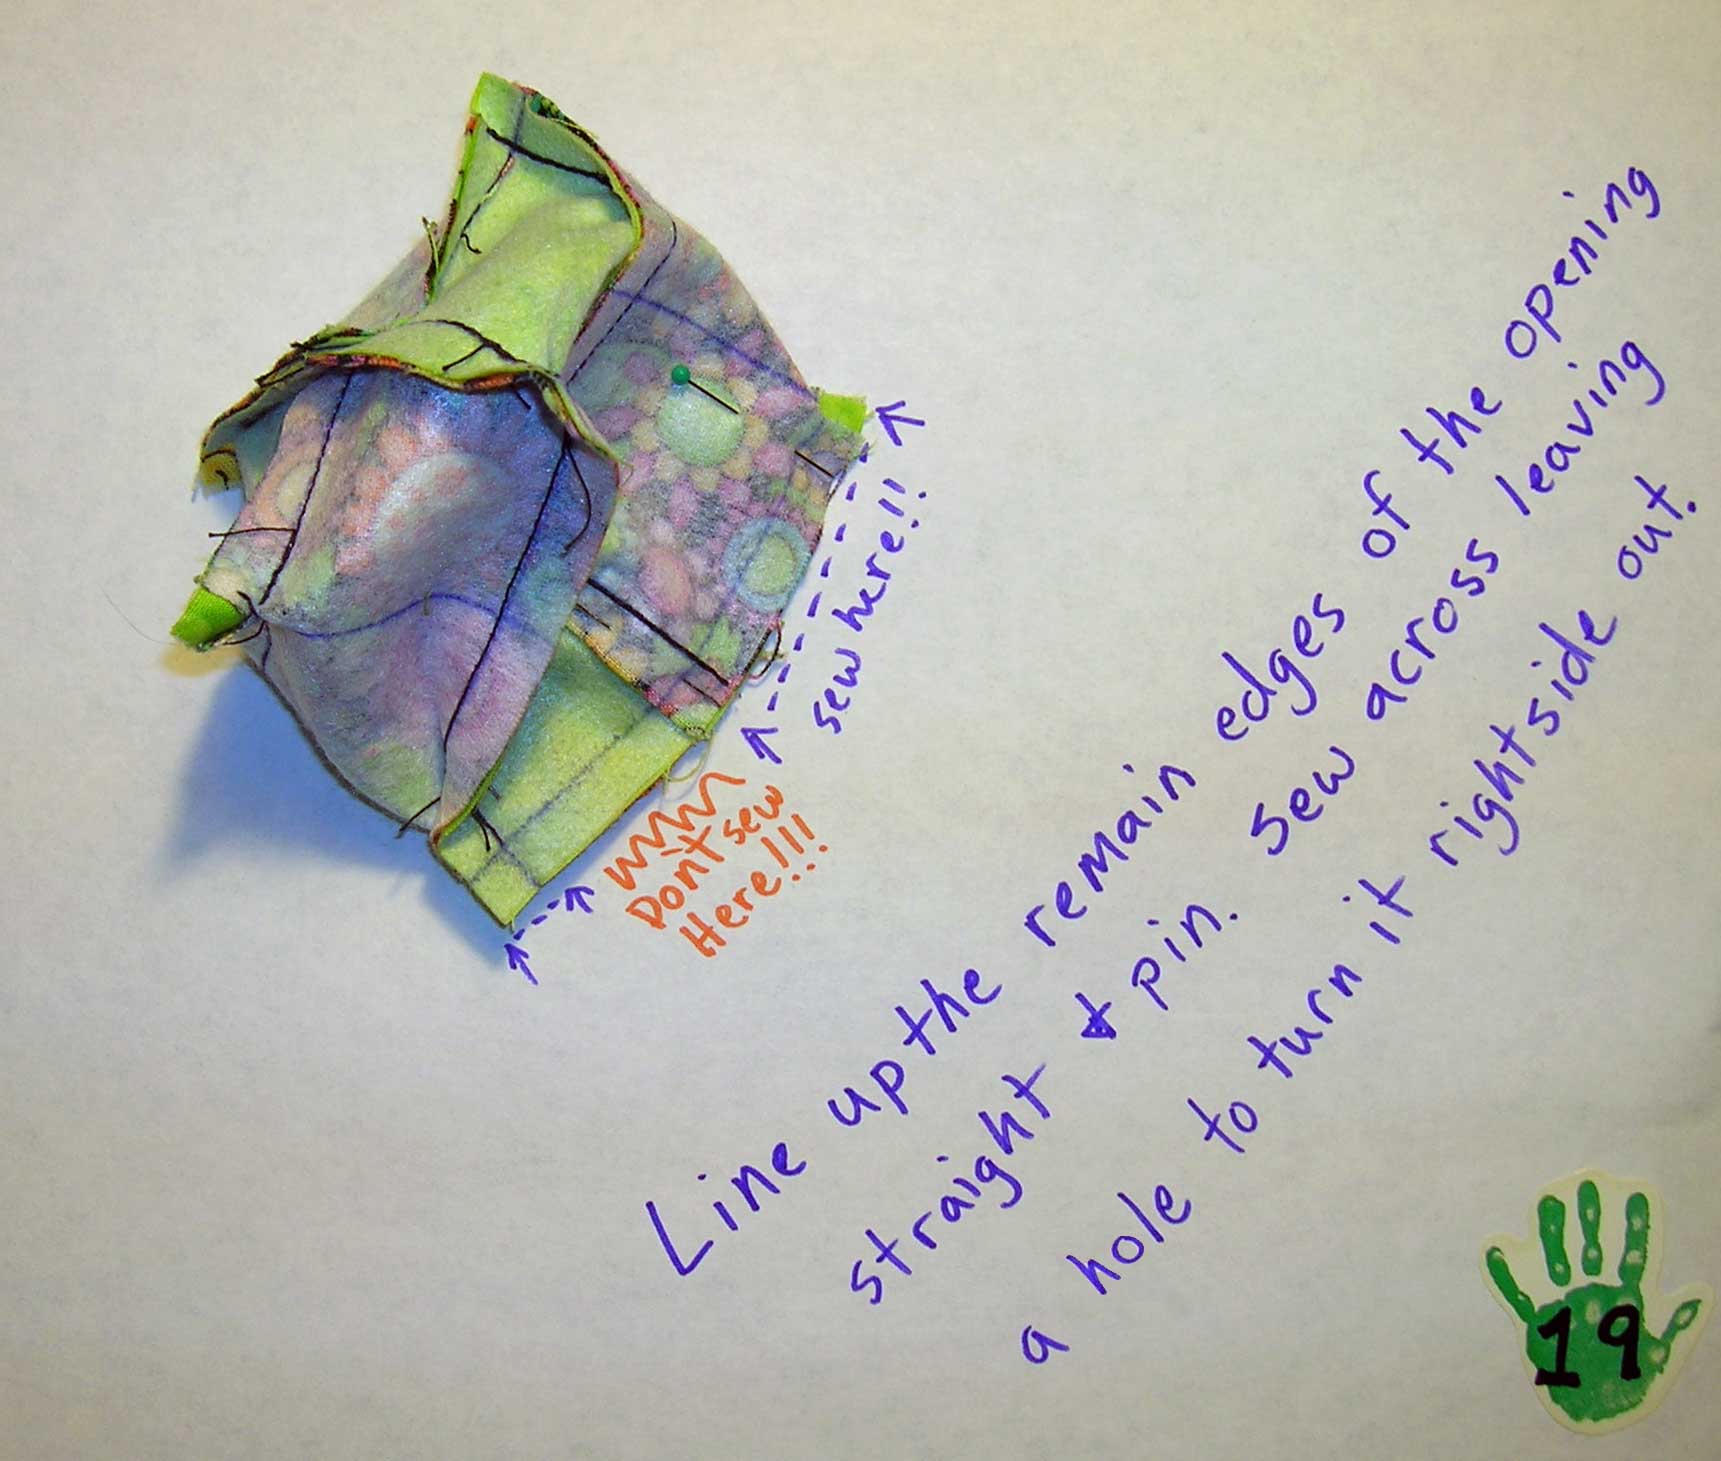 sew here!!
Don't sew
Here!!!
Line up the remain edges of the opening
straight & pin. Sew across leaving
a hole to turn it rightside out.
19